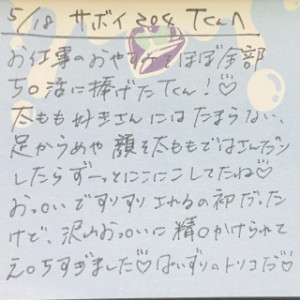 5/18 サボイ204 Tくんへ
お仕事のおやすみをほぼ全部
ち○活に捧げたTくん!♡
太もも好きさんにはたまらない、
足からうめや 顔を太ももではさんだり
したらずーっとにこにこしてたね♡
おっ○いですりすりされるの初だった
けど、沢山おっ○いに精○かけられて
え○ちすぎました♡ぱいずりのトリコだ♡